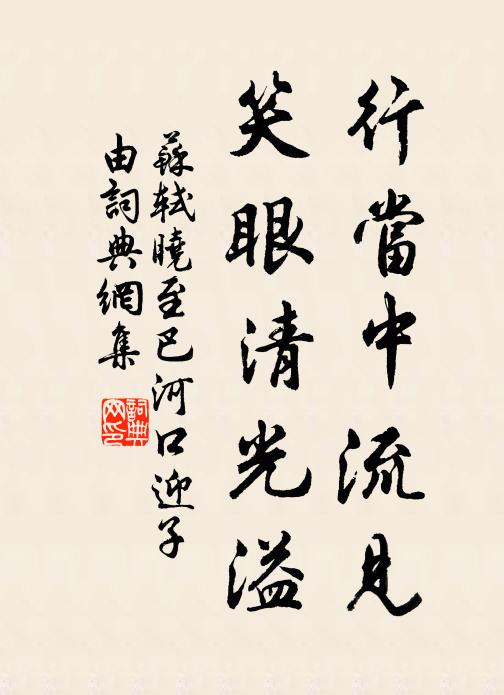 行當中流見
笑眼清光溢
蘇軾曉至巴河口迎子
由詞典網集
詞典
网印